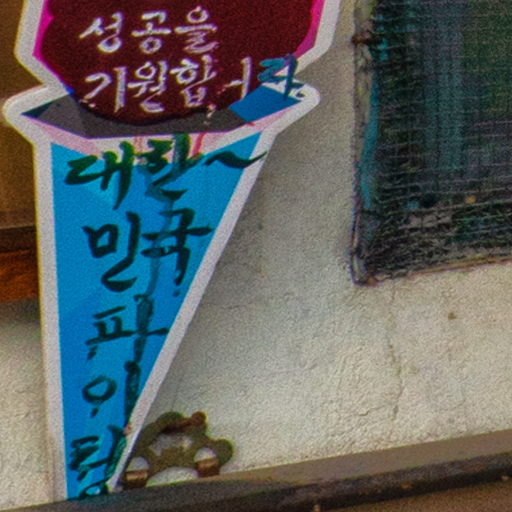 성공을
기원합니다
대한~
민국
파
이
팅